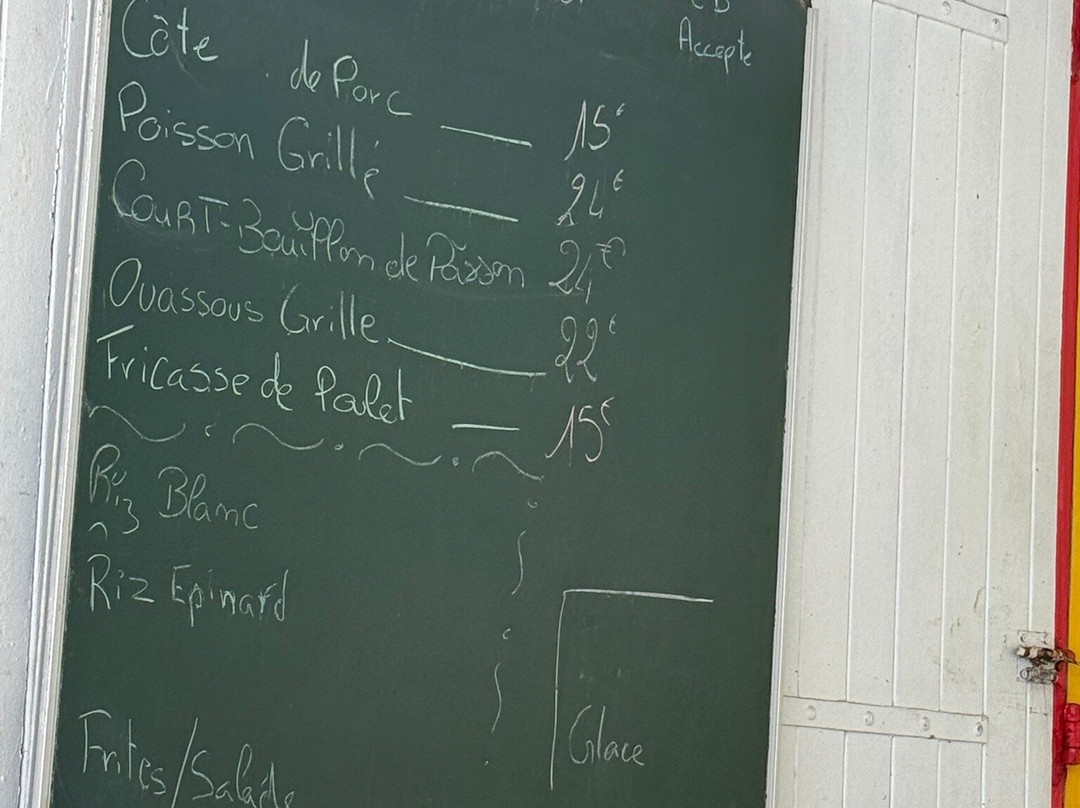 CB
Accepte
Côte de Porc — 15€
Poisson Grillé — 24€
Court-Bouillon de Poisson 24€
Ouassous Grille — 22€
Fricasse de Poulet — 15€
Riz Blanc
Riz Epinard
Frites/Salade
Glace